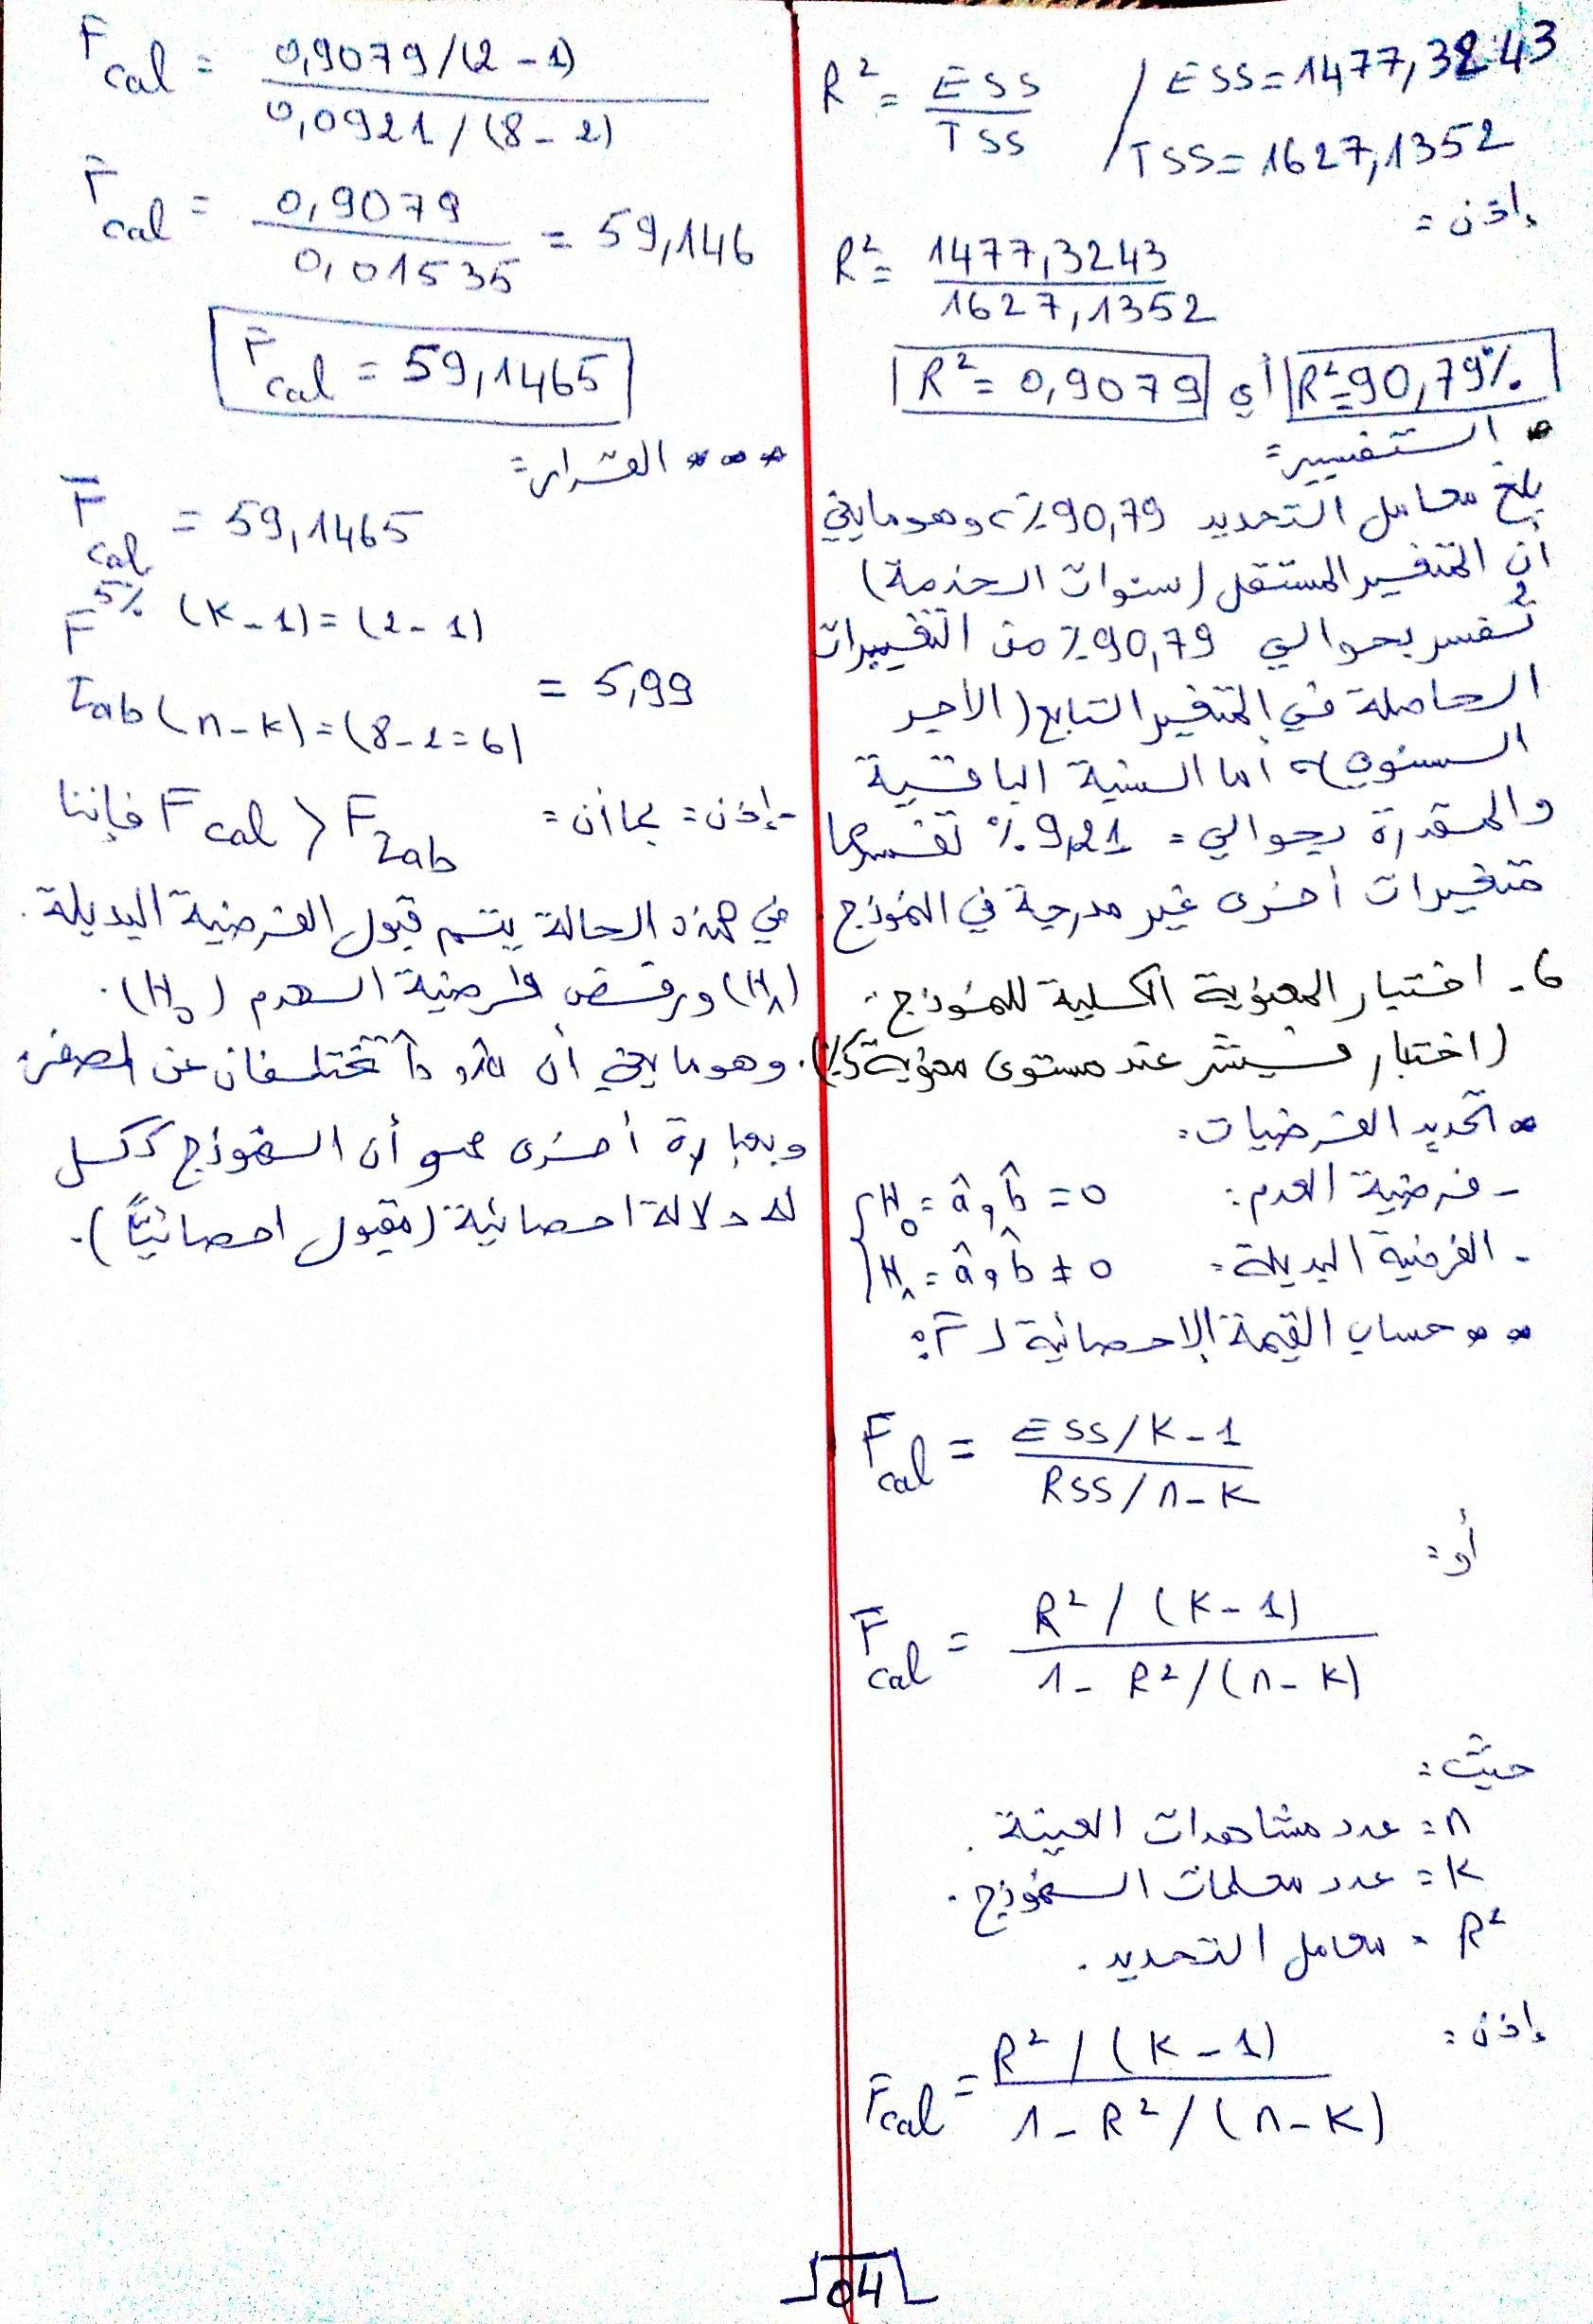 R² = ESS / TSS / ESS = 1477,3243
TSS = 1627,1352
إذن =
R² = 1477,3243 / 1627,1352
R² = 0,9079 أي R² = 90,79%
* التفسير =
بلغ معامل التحديد 90,79٪، وهو ما يعني
أن المتغير المستقل (سنوات الخدمة)
تفسر بحوالي 90,79٪ من التغيرات
الحاصلة في المتغير التابع (الأجر
السنوي)، أما النسبة الباقية
والمقدرة بحوالي = 9,21 % تفسرها
متغيرات أخرى غير مدرجة في النموذج.
6 - اختبار المعنوية الكلية للنموذج:
(اختبار فيشر عند مستوى معنوية 5٪).
* تحديد الفرضيات:
- فرضية العدم: H₀ = â و b̂ = 0
- الفرضية البديلة: H₁ = â و b̂ ≠ 0
** حساب القيمة الإحصائية لـ F:
Fcal = ESS/K-1 / RSS/n-K
أو:
Fcal = R²/(K-1) / 1-R²/(n-K)
حيث:
n = عدد مشاهدات العينة.
K = عدد معلمات النموذج.
R² = معامل التحديد.
إذن:
Fcal = R²/(K-1) / 1-R²/(n-K)
Fcal = 0,9079/(2-1) / 0,0921/(8-2)
Fcal = 0,9079 / 0,01535 = 59,146
Fcal = 59,1465
*** القرار:
Fcal = 59,1465
F 5% (K-1)=(2-1)
Tab (n-K)=(8-2=6) = 5,99
- إذن = بما أن = Fcal > FTab فإننا
في هذه الحالة يتم قبول الفرضية البديلة.
(H₁) ورفض فرضية العدم (H₀).
وهو ما يعني أن â و b̂ تختلفان عن الصفر.
وبعبارة أخرى هو أن النموذج ككل
له دلالة احصائية (مقبول احصائيًّا).
04